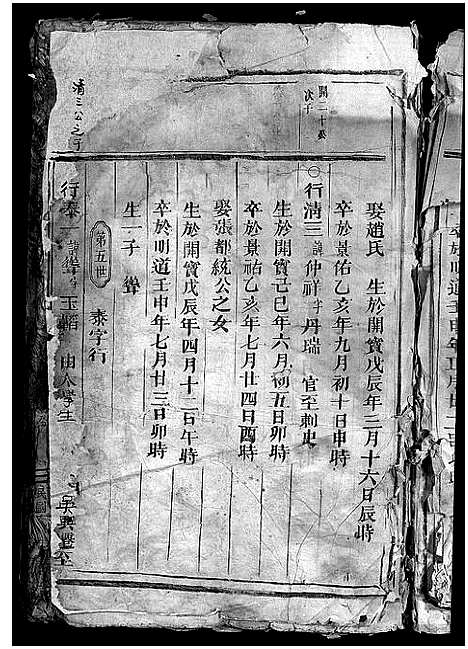 開二十葵
次子
娶趙氏　生於開寶戊辰年三月十六日辰時
卒於景佑乙亥年九月初十日申時
〇行清三諱仲祥字丹瑞　官至刺史
生於開寶己巳年六月初五日卯時
卒於景祐乙亥年七月廿四日酉時
娶張都統公之女
生於開寶戊辰年四月十二日午時
卒於明道壬申年七月廿三日卯時
生一子　聳
第五世　泰字行
清三公之子
行泰一諱聳字玉　由人學生